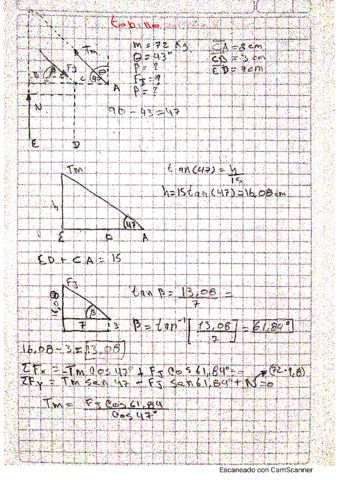 tobillo
m = 72 Kg
Θ = 43°
β = ?
Fj = ?
P = ?
CA = 8 cm
CB = 3 cm
ED = 7 cm
Tm
Fj
B
C
A
N
E
D
90 - 43 = 47
Tm
h
47
E
D
A
tan(47) = h/15
h = 15 tan(47) = 16,08 cm
ED + CA = 15
Fj
13,08
β
7
3
tan β = 13,08/7 =
β = tan⁻¹[13,08/7] = 61,84°
16,08 - 3 = 13,08
ΣFx = -Tm cos 47° + Fj cos 61,84° = 0
(72·9,8)
ΣFy = Tm sen 47 - Fj sen 61,84° + N = 0
Tm = Fj cos 61,84 / cos 47°
Escaneado con CamScanner